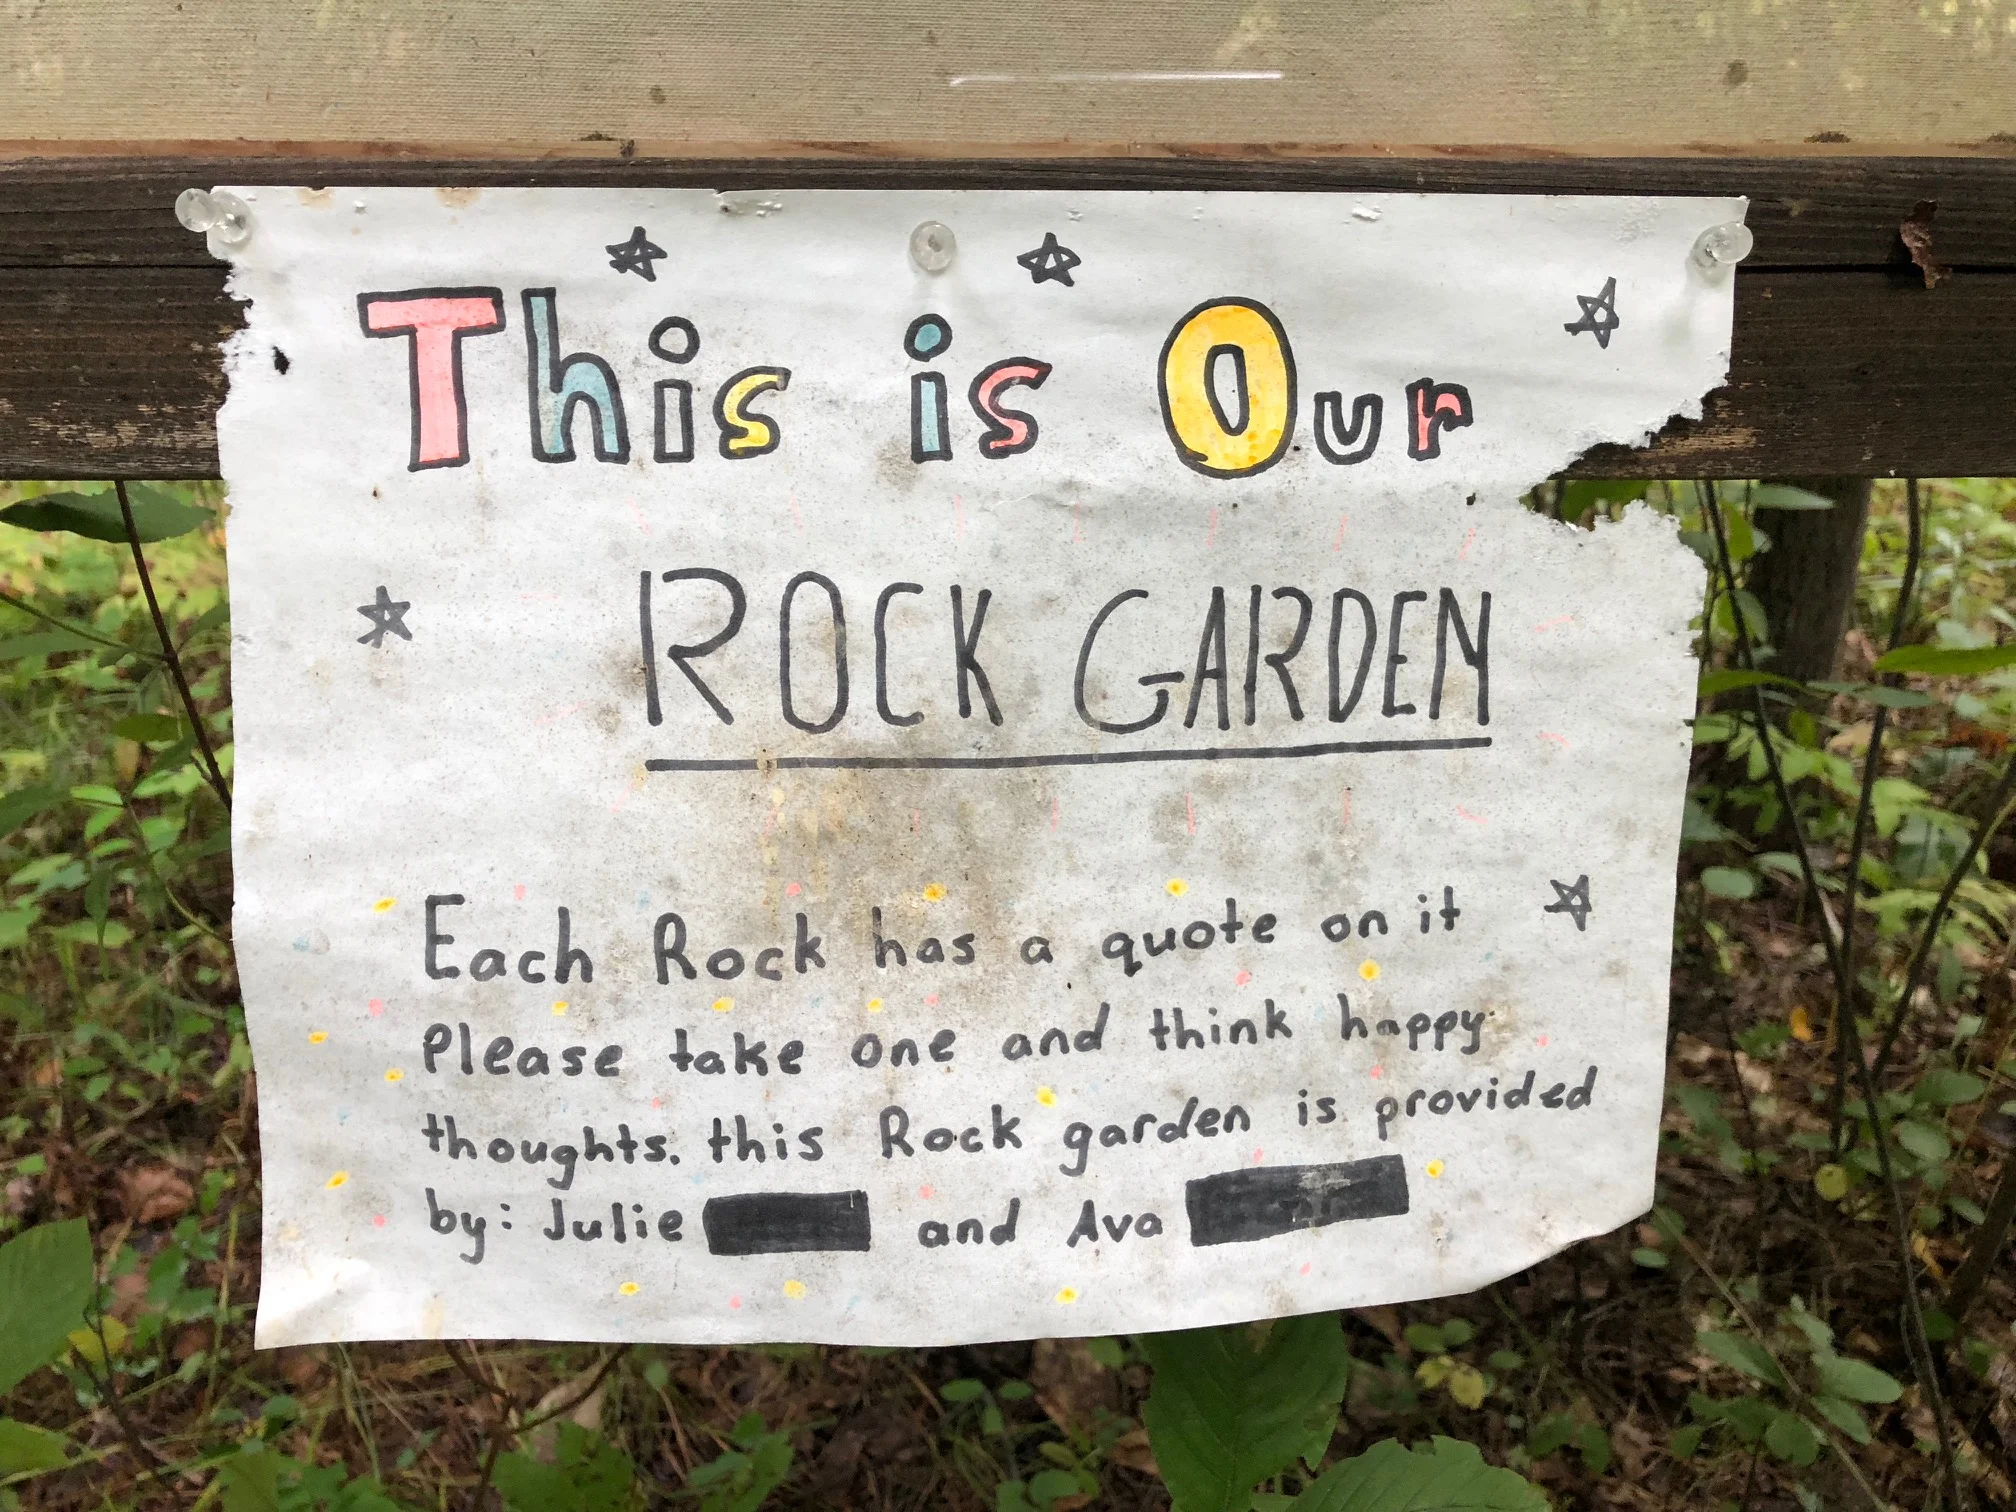 This is Our
ROCK GARDEN
Each Rock has a quote on it
Please take one and think happy
thoughts. this Rock garden is provided
by: Julie and Ava